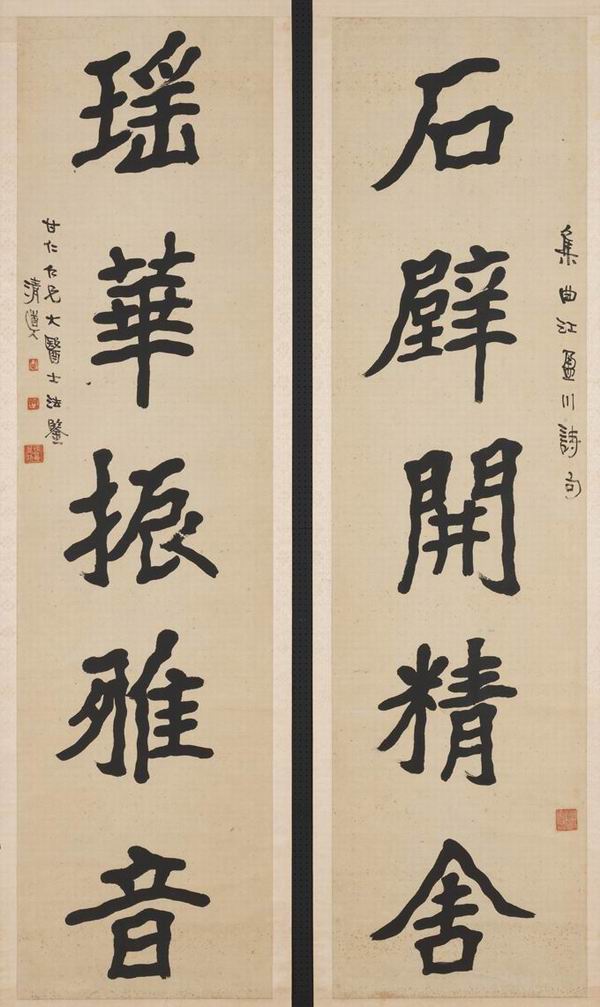 集曲江盈川詩句
石壁開精舍
瑤華振雅音
甘仁仁兄大醫士法鑒
清道人